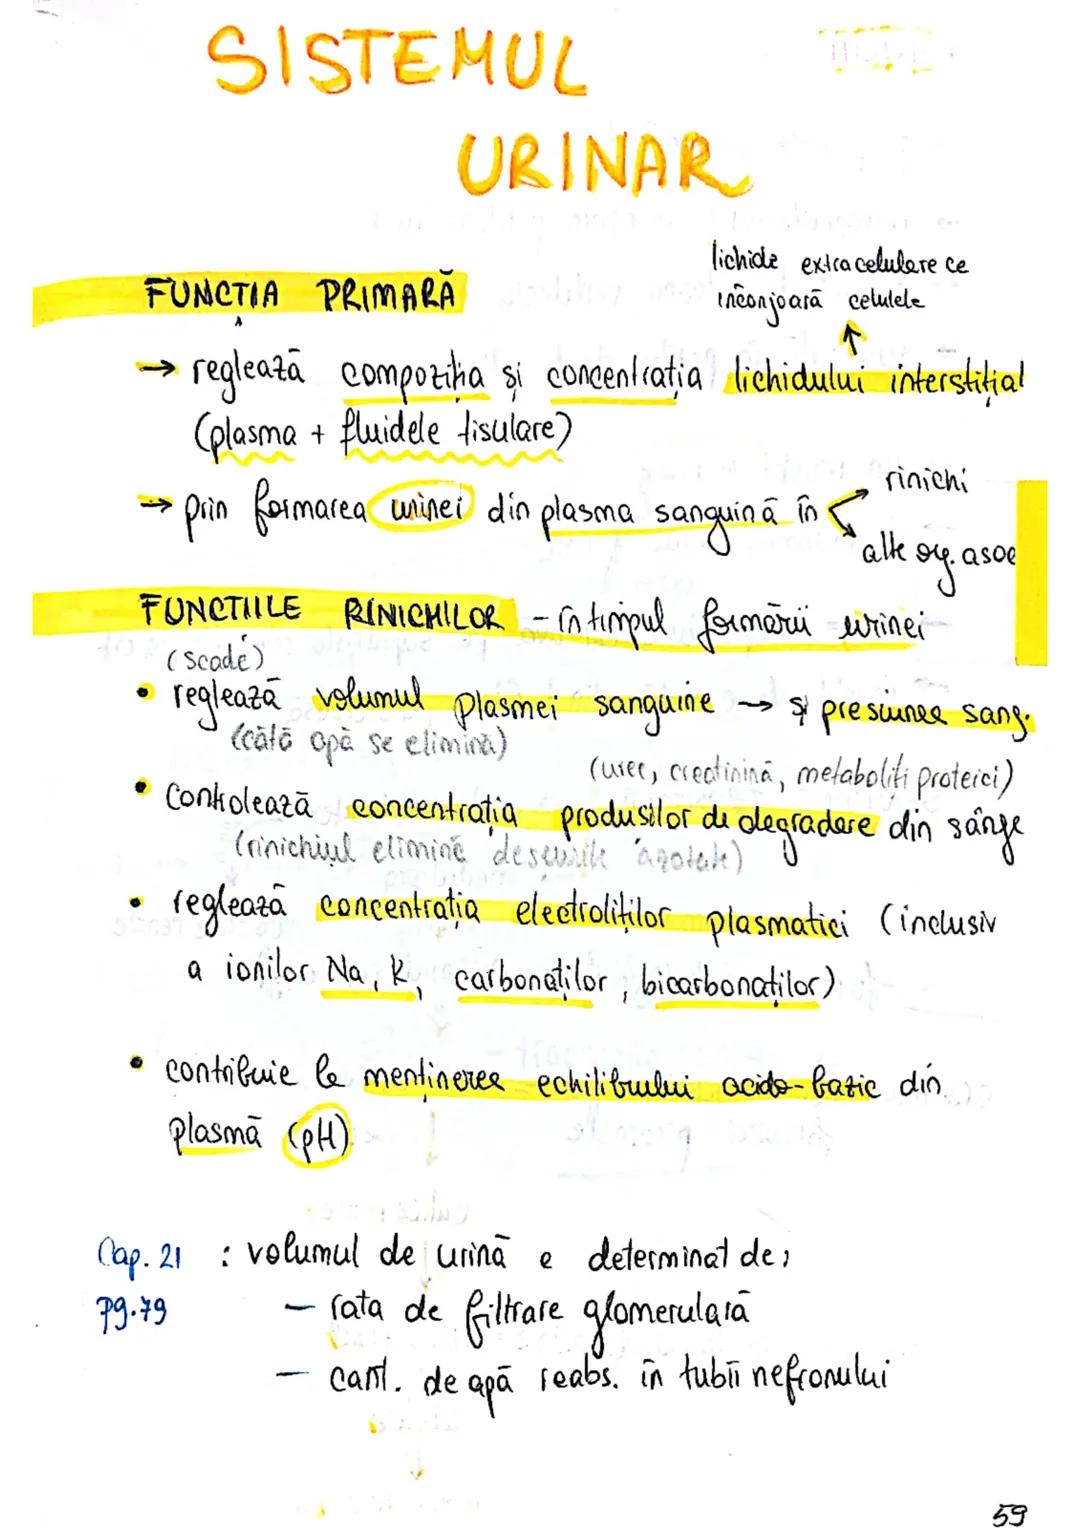 SISTEMUL
URINAR
lichide extracelulare ce
înconjoară celulele
FUNCȚIA PRIMARĂ
→ reglează compoziția și concentrația lichidului interstițial
(plasma + fluidele tisulare)
→ prin formarea urinei din plasma sanguină în
rinichi
alte org. asoc
FUNCTIILE RINICHILOR - în timpul formării urinei
(scade)
• reglează volumul plasmei sanguine → și presiunea sang.
(câtă apă se elimină)
(uree, creatinină, metaboliți proteici)
• controlează concentrația produsilor de degradare din sânge
(rinichiul elimină deșeurile azotate)
• reglează concentrația electroliților plasmatici (inclusiv
a ionilor Na, K, carbonaților, bicarbonaților)
• contribuie la menținerea echilibrului acido-bazic din
plasmă (pH)
Cap. 21 : volumul de urină e determinat de:
pg. 79 - rata de filtrare glomerulară
- cant. de apă reabs. în tubii nefronului
59